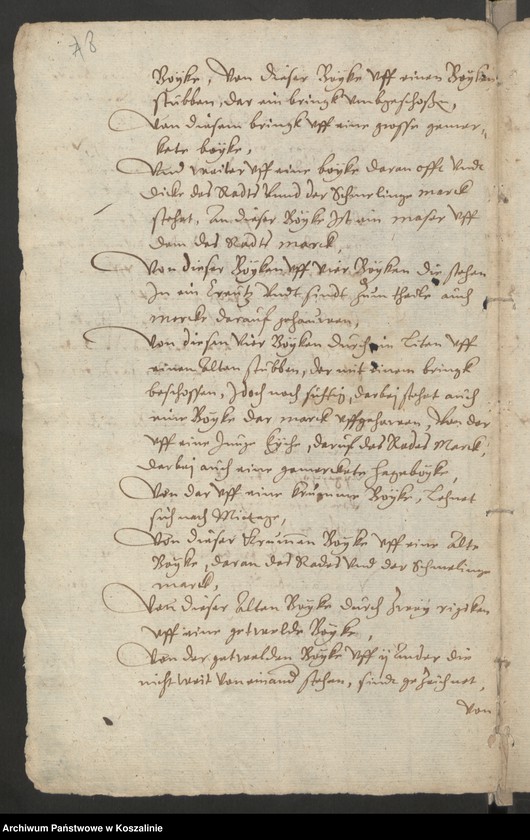 48
Böÿke, Von dieser Böÿke vff einen Böÿken
stubben, der ein bringk vmbgeschoßen,
Von diesem bringk vff eine grosse gemer-
kete boÿke,
Vnd weiter vff eine boÿke daran offt Vndt
dicke des Radts Vnnd der Schmelinge marck
stehet, An dieser Boÿke Ist ein maser vff
dem des Radts marck,
Von dieser Böÿken vff vier Böÿken die stehen
In ein Creutz Vndt sindt Zum theile auch
mercke darauf gehauwen,
Von diesen vier Boÿken durch ein vff
einen Alten stubben, der mit einem bringk
beschossen, Idoch noch, darbei stehet auch
eine Böÿke der marck vffgehawen, Von der
vff eine Junge Eÿche, daruf des Rades Marck,
darbei auch eine gemerckete hageböÿke,
Von der vff eine krumme Böÿke, Lehnet
sich nach Mittage,
Von dieser Krummen Böÿke vff eine Alte
Böÿke, daran des Rades Vnd der Schmelinge
marck,
Von dieser Alten Böÿke durch Zweÿ
vff eine getwelde Böÿke,
Von der getwelden Böÿke vff ij Ander die
nicht weit Von einand stehen, sindt geZeichnet,
Von
Archiwum Państwowe w Koszalinie